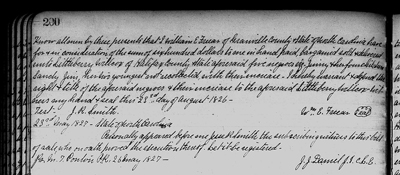 200
Know all men by these presents that I William E. Freear of Granville County State of North Carolina have
for & in consideration of the sum of six hundred dollars to me in hand paid, bargained sold & delivered
unto Littleberry Wilcox of Halifax County State aforesaid five negroes viz. Jinny & her four children
namely Jim, her two youngest and with their increase. I hereby warrant & defend the
right & title of the aforesaid negroes & their increase to the aforesaid Littleberry Wilcox witness
my hand & seal this 23d day of August 1826
Test. J. R. Smith. Wm. E. Freear (Seal)
23d May 1827 State of North Carolina
Personally appeared before me J. R. Smith, the subscribing witness to this bill
of sale, who on oath proved the execution thereof. Let it be registered.
28 May 1827 J. J. Daniel J.S.C.L.E.